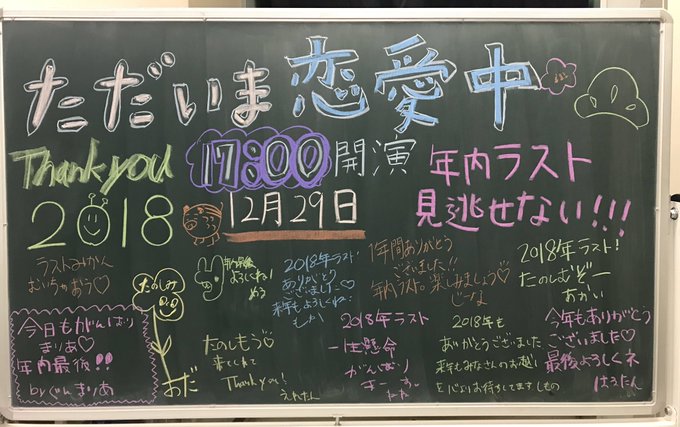 ただいま恋愛中
Thank you
2018
17:00開演
12月29日
年内ラスト
見逃せない!!!
ラストみかん
むいちゃおう♡
たのしみ
おだ
今日もがんばり
まりあ♡
年内最後!!
byぐんまりあ
よろしくね!
める
2018年ラスト
ありがとう
ございました
来年もよろしくね!
1年間ありがとう
ございました!!
年内ラスト。楽しみましょう♡
じーな
2018年ラスト!
たのしむぞー
おかい
たのしもう♡
来てくれて
Thank you!
えれたん
2018年ラスト
一生懸命
がんばり
まーす
2018年も
ありがとうございました
来年もみなさんのお越し
を心よりお待ちしてます しもの
今年もありがとう
ございました♡
最後よろしくネ
はるたん